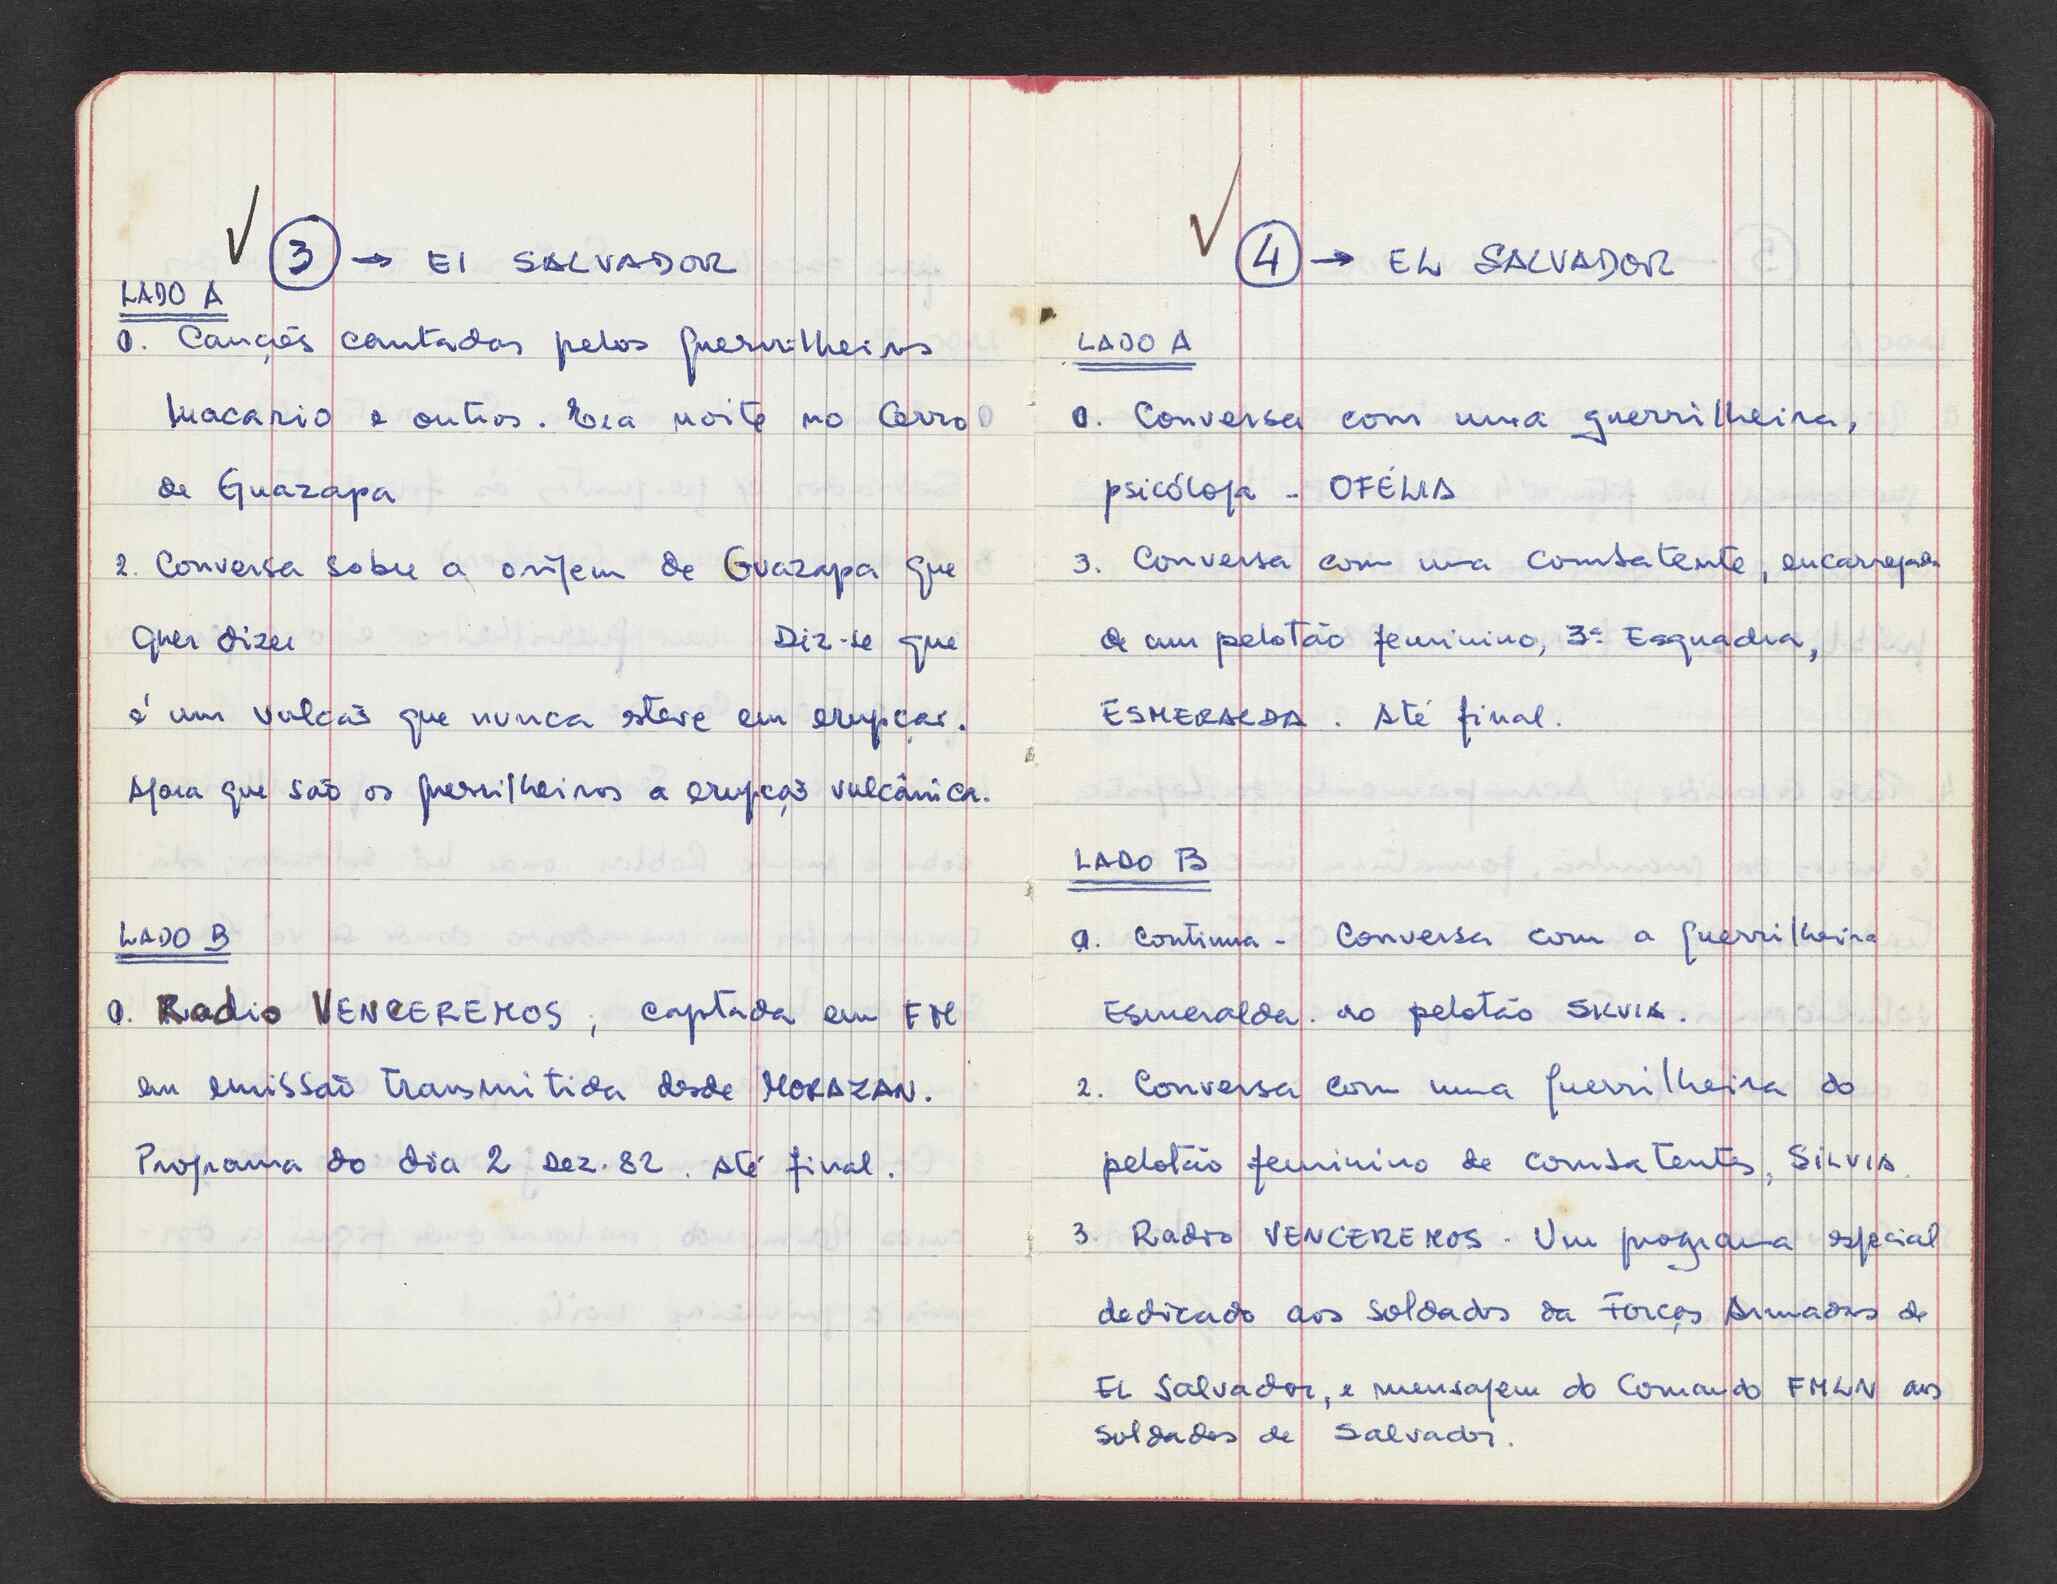 ✓ ③ → El SALVADOR
LADO A
0. Canções cantadas pelos guerrilheiros
Macario e outros. Era noite no Cerro
de Guazapa
2. Conversa sobre a origem de Guazapa que
quer dizer Diz-se que
é um vulcão que nunca esteve em erupção.
Agora que são os guerrilheiros a erupção vulcânica.
LADO B
0. Radio VENCEREMOS, captada em FM
em emissão transmitida desde MORAZAN.
Programa do dia 2 Dez. 82. Até final.
✓ ④ → EL SALVADOR
LADO A
0. Conversa com uma guerrilheira,
psicóloga - OFÉLIA
3. Conversa com uma combatente, encarregada
de um pelotão feminino, 3ª Esquadra,
ESMERALDA. Até final.
LADO B
0. Continua - Conversa com a guerrilheira
Esmeralda. do pelotão SILVIA.
2. Conversa com uma guerrilheira do
pelotão feminino de combatentes, SILVIA.
3. Radio VENCEREMOS - Um programa especial
dedicado aos soldados da Forças Armadas de
EL Salvador, e mensagem do Comando FMLN aos
soldados de Salvador.